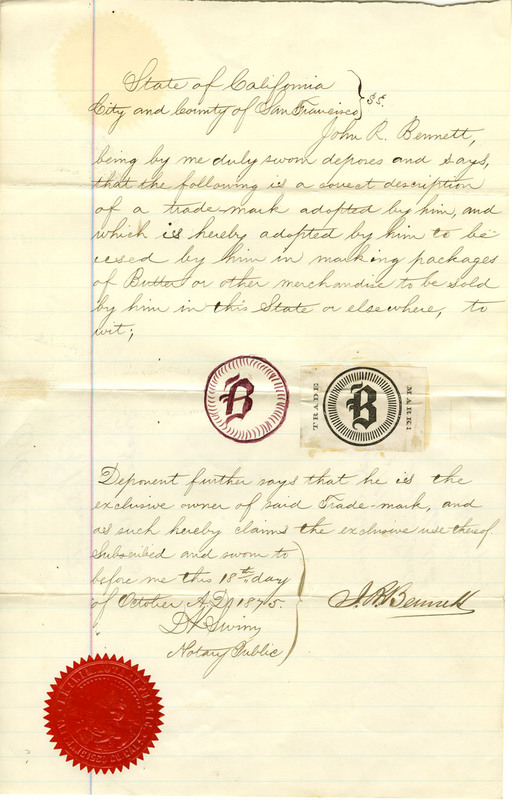 State of California
City and County of San Francisco } SS.
John R. Bennett,
being by me duly sworn deposes and says,
that the following is a correct description
of a trade-mark adopted by him, and
which is hereby adopted by him to be
used by him in marking packages
of Butter or other merchandise to be sold
by him in this State or elsewhere, to
wit;
B
TRADE B MARK:
Deponent further says that he is the
exclusive owner of said Trade-mark, and
as such hereby claims the exclusive use thereof.
Subscribed and sworn to
before me this 18th day
of October A.D. 1875.
J. R. Bennett
Notary Public